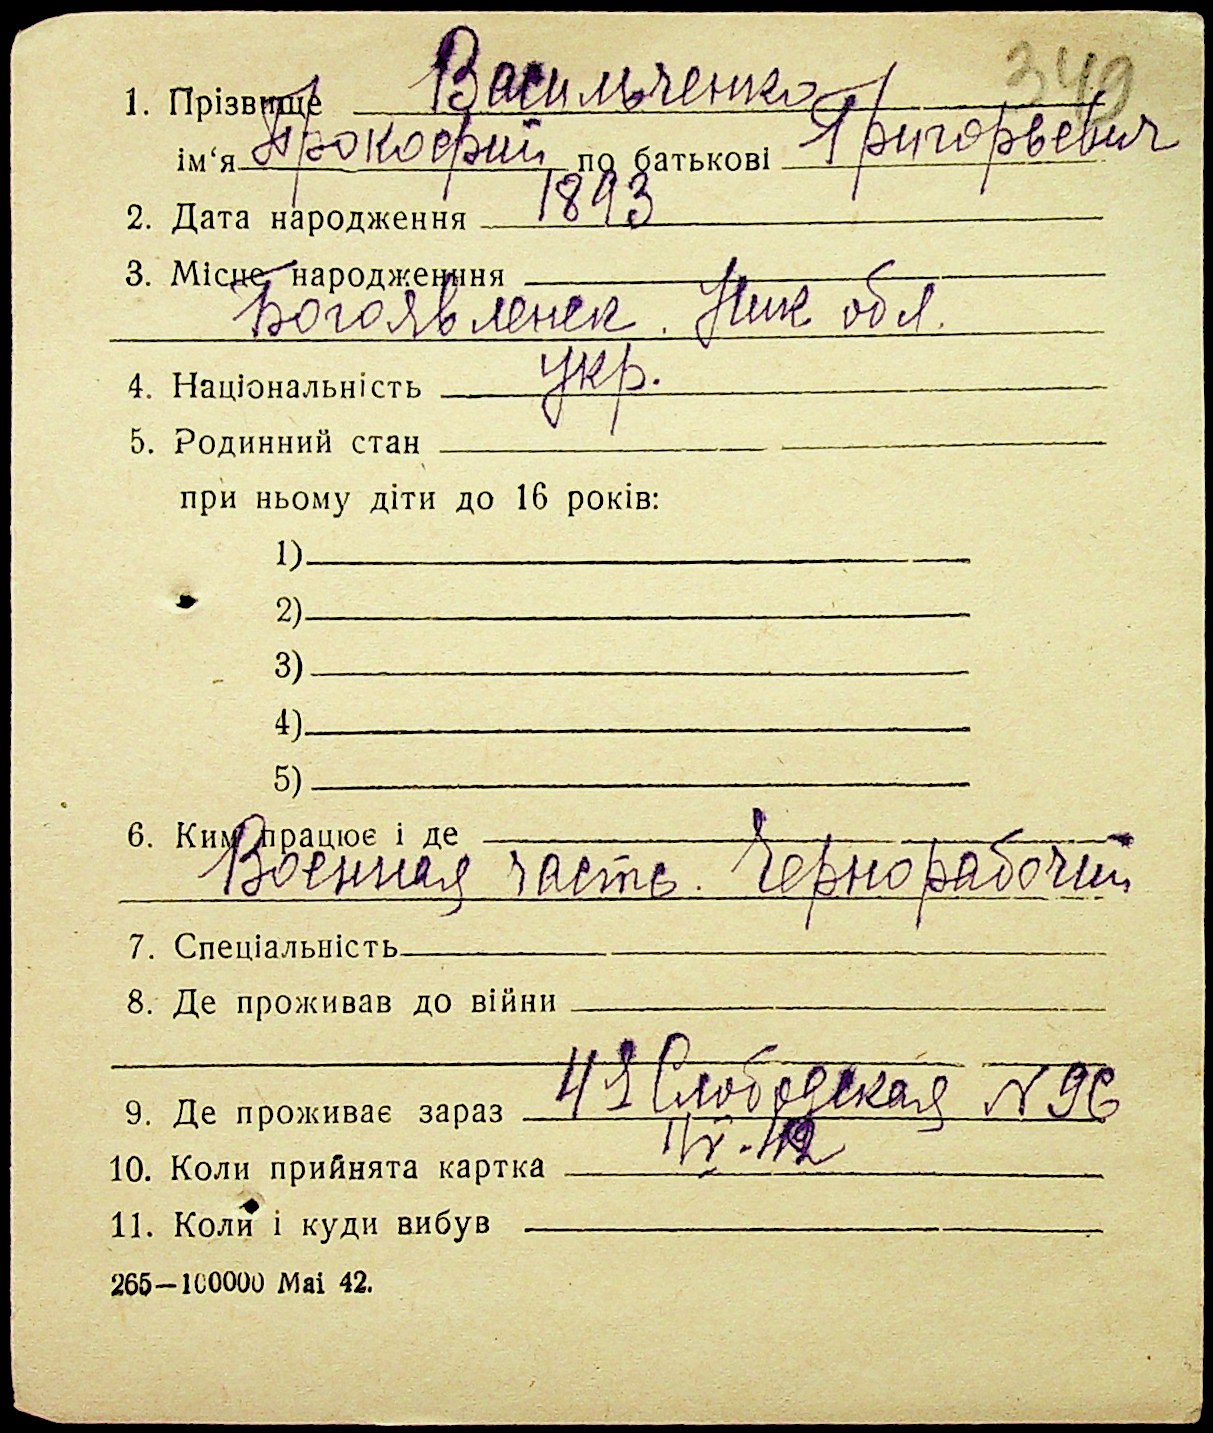 349
1. Прізвище Васильченко
ім‘я Прокофий по батькові Григорьевич
2. Дата народження 1893
3. Місце народження
Богоявленск. Ник обл.
4. Національність укр.
5. Родинний стан
при ньому діти до 16 років:
1)
2)
3)
4)
5)
6. Ким працює і де
Военная часть. Чернорабочий
7. Спеціальність
8. Де проживав до війни
9. Де проживає зараз 4я Слободская N 96
10. Коли прийнята картка
11. Коли і куди вибув
265—100000 Mai 42.